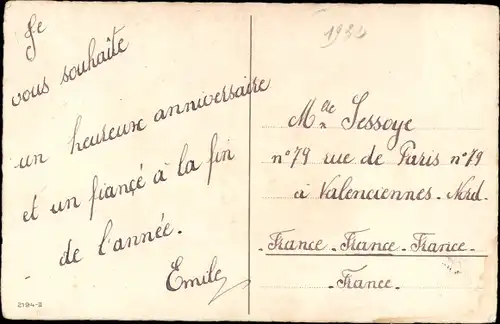 Je
vous souhaite
un heureux anniversaire
et un fiancé à la fin
de l'année.
Emile
2194-2
1932
Mlle Sessoye
n°79 rue de Paris n°79
à Valenciennes. Nord.
France. France. France.
France.